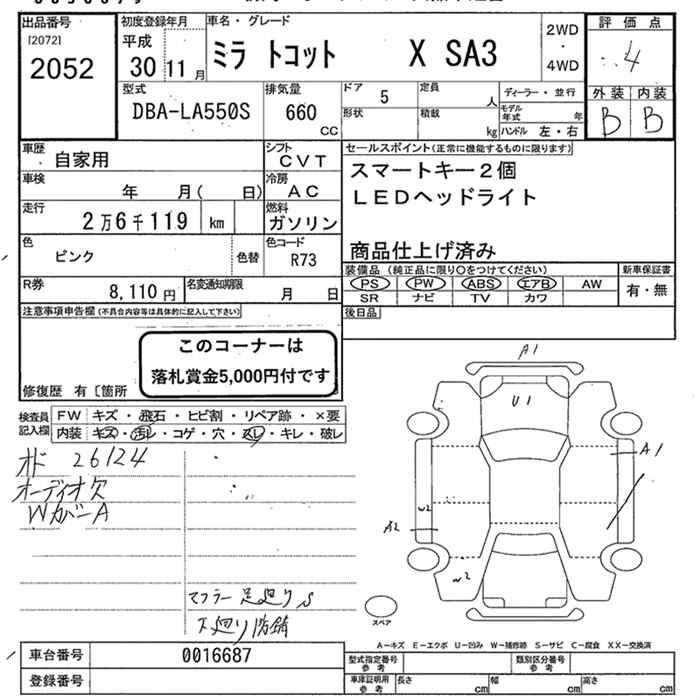 出品番号
[2072]
2052
初度登録年月
平成
30 11 月
車名・グレード
ミラ トコット X SA3
2WD
・
4WD
評価点
4
外装 内装
B B
型式
DBA-LA550S
排気量
660
CC
ドア
5
定員
人
形状
積載
kg
ディーラー・並行
モデル年式 年
ハンドル 左・右
車歴
自家用
シフト
CVT
車検
年 月( 日)
冷房
AC
走行
2万6千119 km
燃料
ガソリン
色
ピンク
色替
色コード
R73
R券
8,110円
名変通知期限
月 日
セールスポイント(正常に機能するものに限ります)
スマートキー2個
LEDヘッドライト
商品仕上げ済み
装備品(純正品に限り○をつけてください)
PS PW ABS エアB AW
SR ナビ TV カワ
新車保証書
有・無
後日品
注意事項申告欄(不具合内容等は具体的に記入して下さい)
このコーナーは
落札賞金5,000円付です
修復歴 有〔箇所
検査員
記入欄
FW キズ・飛石・ヒビ割・リペア跡・×要
内装 キズ・汚レ・コゲ・穴・スレ・キレ・破レ
オド 26124
オーディオ欠
WカバーA
マフラー足廻りS
下廻り防錆
A1
U1
A1
A2
スペア
A－キズ E－エクボ U－凹み W－補修跡 S－サビ C－腐食 XX－交換済
車台番号
0016687
登録番号
型式指定番号
参考
類別区分番号
参考
車庫証明用
参考
長さ cm 幅 cm 高さ cm